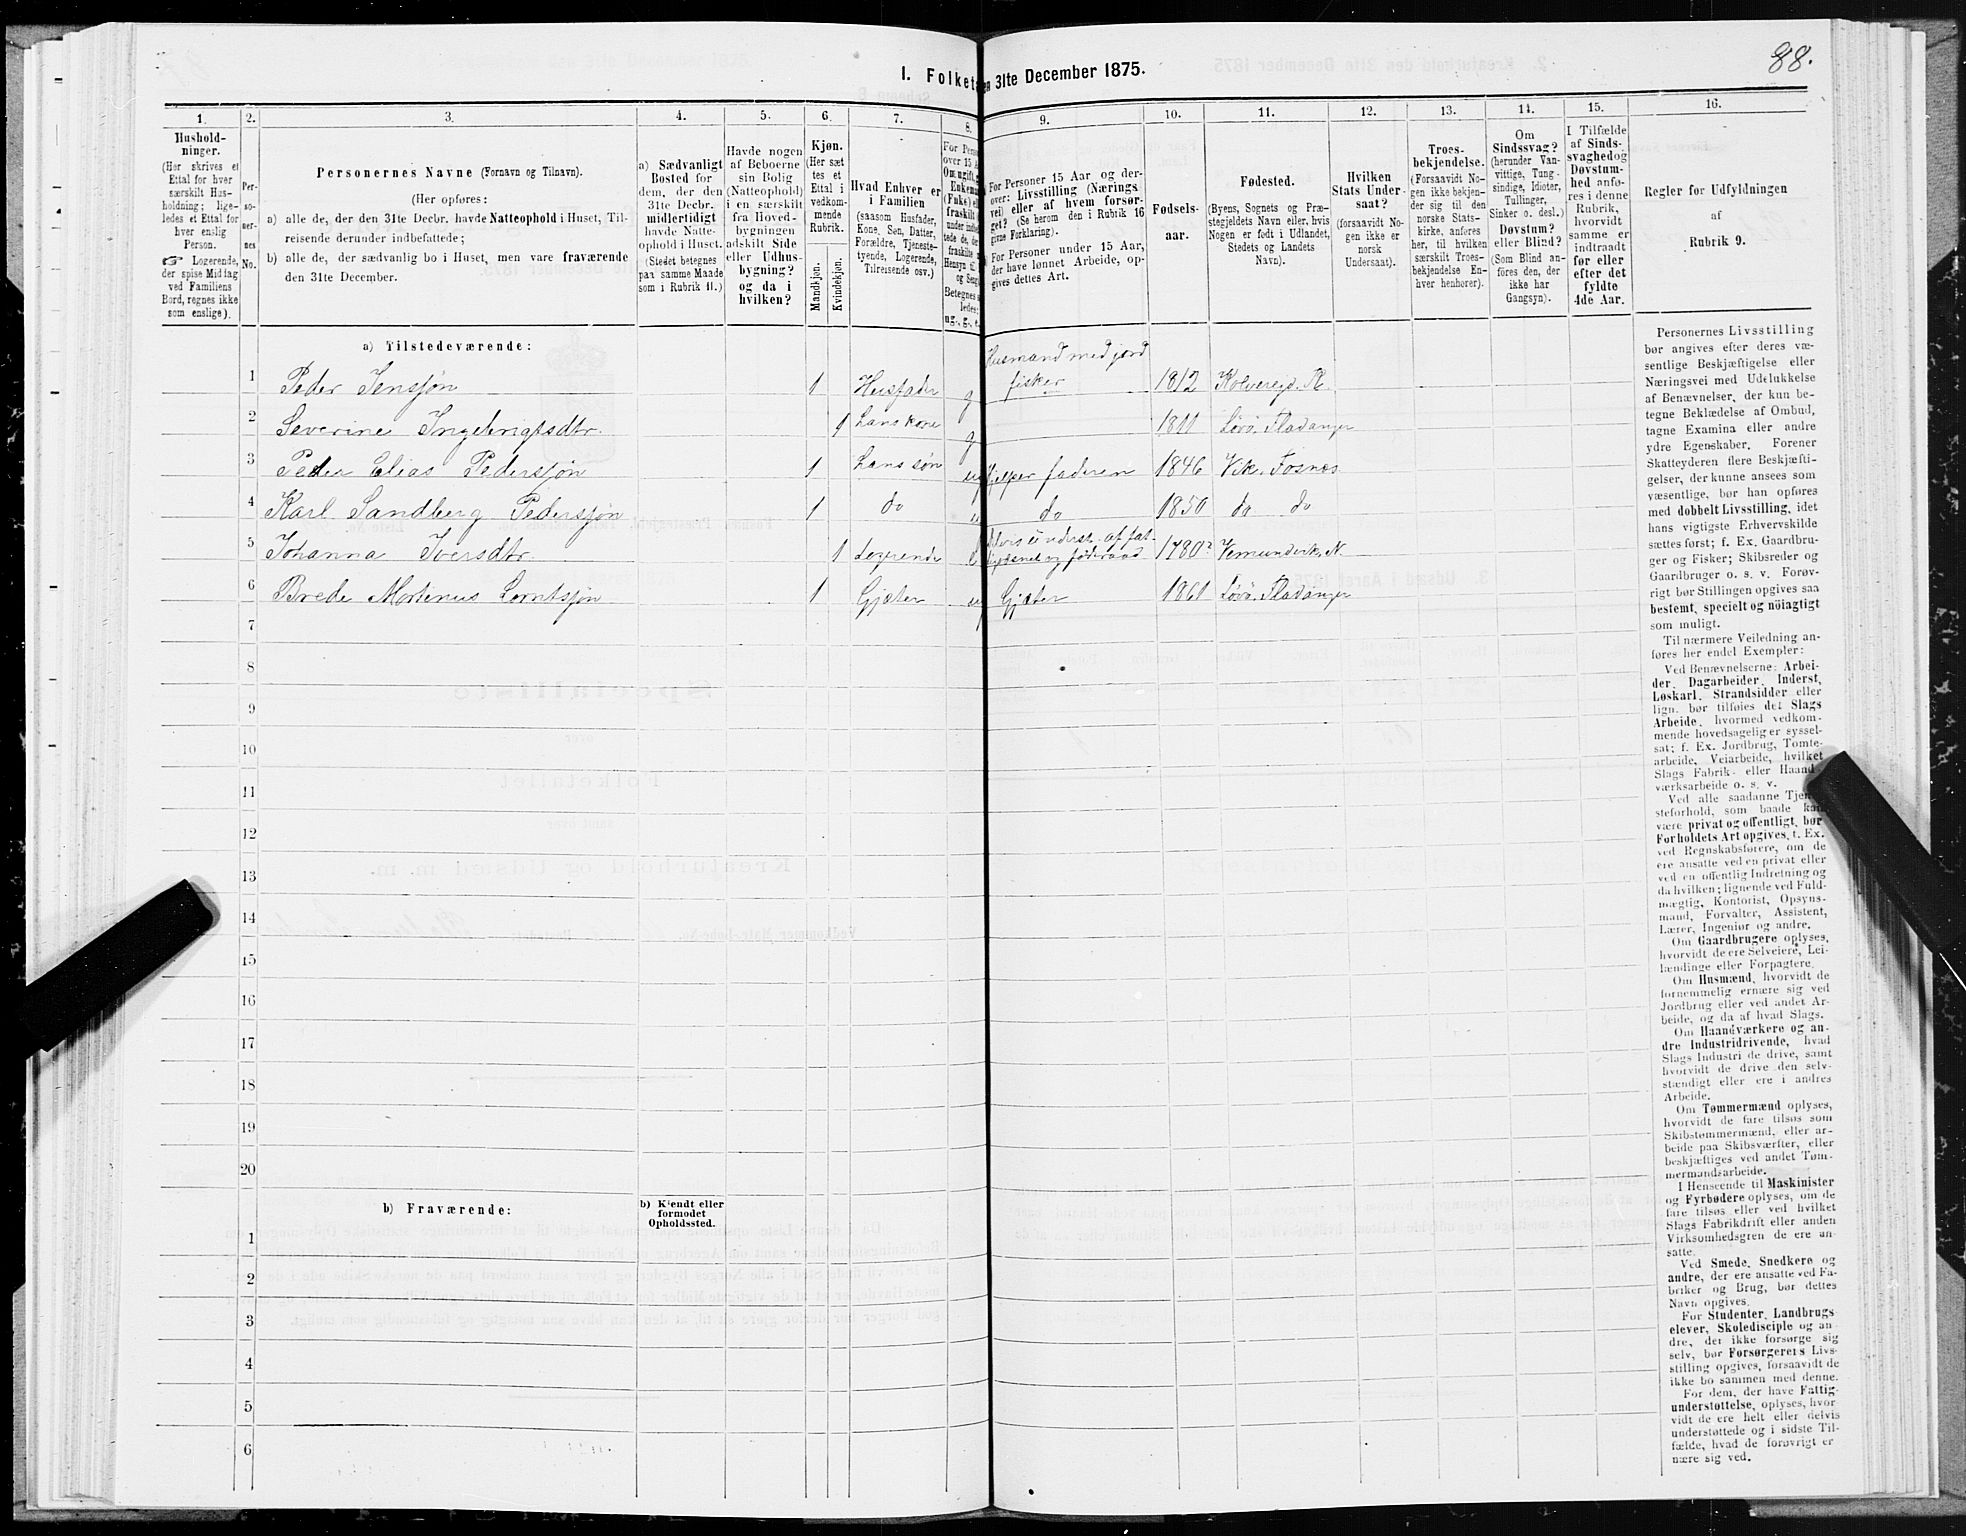 88.
I. Folketa
en 31te December 1875.
1.
2.
3.
4.
5.
6.
7.
8.
9.
10.
11.
12.
13.
14.
15.
16.
Hushold-
ninger.
(Her skrives et
Ettal for hver
særskilt Hus-
holdning; lige-
ledes et Ettal for
hver enslig
Person.
☞ Logerende,
der spise Middag
ved Familiens
Bord, regnes ikke
som enslige).
Per-
so-
ner-
nes
No.
Personernes Navne (Fornavn og Tilnavn).
(Her opføres:
a) alle de, der den 31te Decbr. havde Natteophold i Huset, Til-
reisende derunder indbefattede;
b) alle de, der sædvanlig bo i Huset, men vare fraværende
den 31te December.
a) Sædvanligt
Bosted for
dem, der den
31te Decbr.
midlertidigt
havde Natte-
ophold i Huset.
(Stedet betegnes
paa samme Maade
som i Rubrik 11.)
Havde nogen
af Beboerne
sin Bolig
(Natteophold)
i en særskilt
fra Hoved-
bygningen
adskilt Side
eller Udhus-
bygning?
og da i
hvilken?
Kjøn.
(Her sæt
tes et
Ettal i
vedkom-
mende
Rubrik.
Mandkjøn.
Kvindekjøn.
Hvad Enhver er
i Familien
(saasom Husfader,
Kone, Søn, Datter,
Forældre, Tjeneste-
tyende, Logerende,
Tilreisende osv.)
For Perso
over 15 A
Om ugift, g
Enkeman
(Enke) el
fraskilt
under indbe
tede de, der
fraskilte
Hensyn til
og Seng
Betegnes s
ledes:
ug., g., e.
For Personer 15 Aar og der-
over: Livsstilling (Nærings
vei) eller af hvem forsør-
get? (Se herom den i Rubrik 16
givne Forklaring).
For Personer under 15 Aar,
der have lønnet Arbeide, op-
gives dettes Art.
Fødsels-
aar.
Fødested.
(Byens, Sognets og Præ-
stegjeldets Navn eller, hvis
Nogen er født i Udlandet,
Stedets og Landets
Navn).
Hvilken
Stats Under-
saat?
(forsaavidt No-
gen ikke er
norsk
Undersaat).
Troes-
bekjendelse.
(Forsaavidt No-
gen ikke bekjen-
der sig til den
norske Stats-
kirke, anføres
her, til hvilken
særskilt Troes-
bekjendelse En-
hver henhører).
Om
Sindssvag?
(herunder Van-
vittige, Tung-
sindige, Idioter,
Tullinger,
Sinker o. desl.)
Døvstum?
eller Blind?
(Som Blind an-
føres den, der
ikke har
Gangsyn).
I Tilfælde
af Sinds-
svaghed og
Døvstum-
hed anfø-
res i denne
Rubrik,
hvorvidt
samme er
indtraadt
før eller
efter det
fyldte
4de Aar.
Regler for Udfyldningen
af
Rubrik 9.
a) Tilstedeværende:
Husmand med jord
1 Peder Jensjøn 1 Husfader g fisker 1812 Kolvereid, Pl.
2 Severine Ingebrigtsdtr. 1 hans kone g 1811 Løvø, Fladanger
3 Peder Elias Pedersjøn 1 hans søn ug hjelper faderen 1846 Vik, Fosnes
4 Karl Sandberg Pedersjøn 1 do do 1850 do do
5 Johanna Iversdtr. 1 Logerende underst. af fat- 1780? Vemundvik, N
6 Brede Mortinus Lorntsjøn 1 Gjæter ug Gjæter 1861 Løvø, Fladanger
7
8
9
10
11
12
13
14
15
16
17
18
19
20
b) Fraværende:
b) Kjendt eller
formodet
Opholdssted.
1
2
3
4
5
6
Personernes Livsstilling
bør angives efter deres væ-
sentlige Beskjæftigelse eller
Næringsvei med Udelukkelse
af Benævnelser, der kun be-
tegne Beklædelse af Ombud,
tagne Examina eller andre
ydre Egenskaber. Forener
Skatteyderen flere Beskjæfti-
gelser, der kunne ansees som
væsentlige, bør han opføres
med dobbelt Livsstilling, idet
hans vigtigste Erhvervskilde
sættes først; f. Ex. Gaardbru-
ger og Fisker; Skibsreder og
Gaardbruger o. s. v. Forøv-
rigt bør Stillingen opgives saa
bestemt, specielt og nöiagtigt
som muligt.
Til nærmere Veiledning an-
føres her endel Exempler:
Ved Benævnelserne: Arbei-
der, Dagarbeider, Inderst,
Løskarl, Strandsidder eller
lign. bør tilføies det Slags
Arbeide, hvormed vedkom-
mende hovedsagelig er syssel-
sat; f. Ex. Jordbrug, Tomte-
arbeide, Veiarbeide, hvilket
Slags Fabrik- eller Haand-
værksarbeide o. s. v.
Ved alle saadanne Tjene-
steforhold, som baade kan
være privat og offentligt, bør
Forholdets Art opgives, t. Ex.
ved Regnskabsførere, om de
ere ansatte ved en privat eller
ved en offentlig Indretning og
da hvilken; lignende ved Fuld-
mægtig, Kontorist, Opsyns-
mand, Forvalter, Assistent,
Lærer, Ingeniør og andre.
Om Gaardbrugere oplyses,
hvorvidt de ere Selveiere, Lei-
lændinge eller Forpagtere.
Om Husmænd, hvorvidt de
fornemmelig ernære sig ved
Jordbrug eller ved andet Ar-
beide, og da af hvad Slags.
Om Haandværkere og an-
dre Industridrivende, hvad
Slags Industri de drive, samt
hvorvidt de drive den selv-
stændigt eller ere i andres
Arbeide.
Om Tømmermænd oplyses,
hvorvidt de fare tilsøs som
Skibstømmermænd, eller ar-
beide paa Skibsværfter, eller
beskjæftiges ved andet Tøm-
mermandsarbeide.
I Henseende til Maskinister
og Fyrbødere oplyses, om de
fare tilsøs eller ved hvilket
Slags Fabrikdrift eller anden
Virksomhedsgren de ere an-
satte.
Ved Smede, Snedkere og
andre, der ere ansatte ved Fa-
briker og Brug, bør dettes
Navn opgives.
For Studenter, Landbrugs
elever, Skoledisciple og an-
dre, der ikke forsørge sig
selv, bør Forsørgerers Livs-
stilling opgives, forsaavidt de
ikke bo sammen med denne.
For dem, der have Fattig-
understøttelse, oplyses, hvor
vidt de ere helt eller delvis
understøttede og i sidste Til-
fælde, hvad de forøvrigt er
nære sig ved.